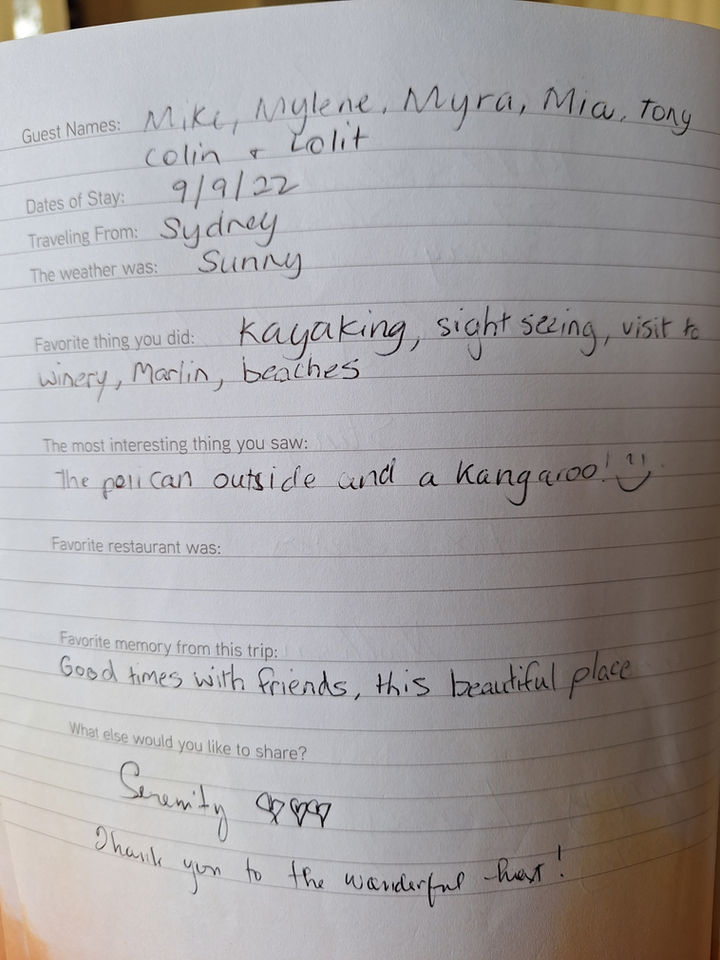 Guest Names: Mike, Mylene, Myra, Mia, Tony
Colin & Lolit
Dates of Stay: 9/9/22
Traveling From: Sydney
The weather was: Sunny
Favorite thing you did: Kayaking, sight seeing, visit to
winery, Marlin, beaches
The most interesting thing you saw:
The pelican outside and a Kangaroo!
Favorite restaurant was:
Favorite memory from this trip:
Good times with friends, this beautiful place
What else would you like to share?
Serenity
Thank you to the wonderful host!